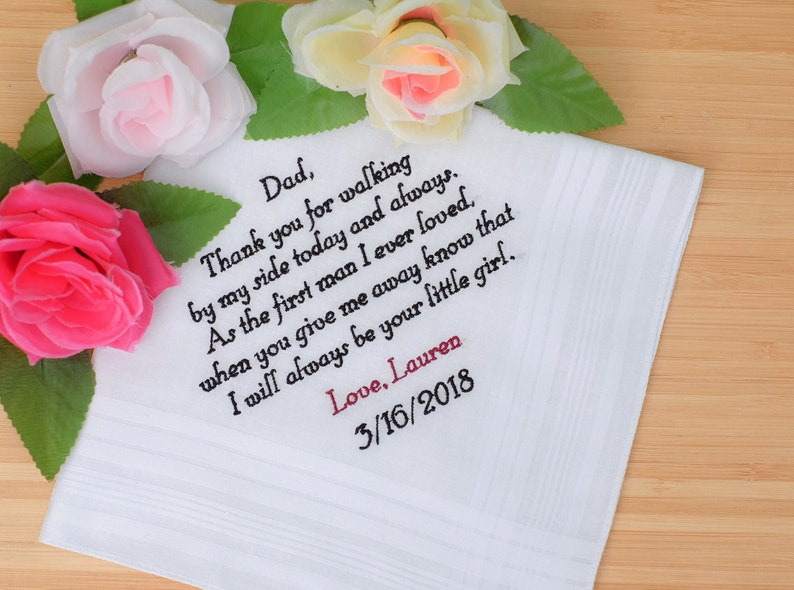 Dad,
Thank you for walking
by my side today and always.
As the first man I ever loved,
when you give me away know that
I will always be your little girl.
Love, Lauren
3/16/2018